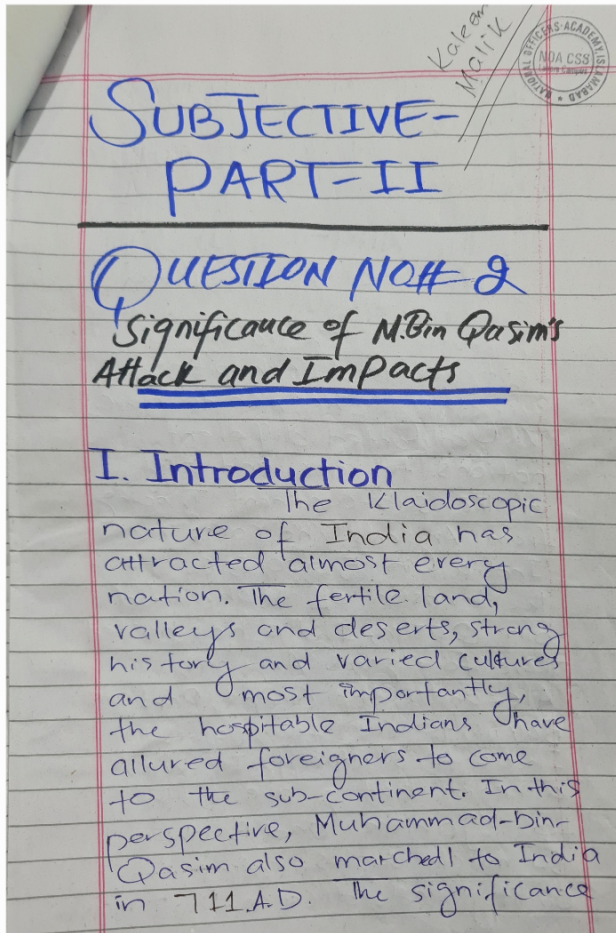 Kaleem
Malik
NATIONAL OFFICERS ACADEMY, ISLAMABAD
NOA CSS
SUBJECTIVE-
PART-II
QUESTION NO# 2
Significance of M.Bin Qasim's
Attack and Impacts
I. Introduction
The Klaidoscopic
nature of India has
attracted almost every
nation. The fertile land,
valleys and deserts, strong
history and varied cultures
and most importantly,
the hospitable Indians have
allured foreigners to come
to the sub-continent. In this
perspective, Muhammad-bin-
Qasim also marched to India
in 711 A.D. The significance